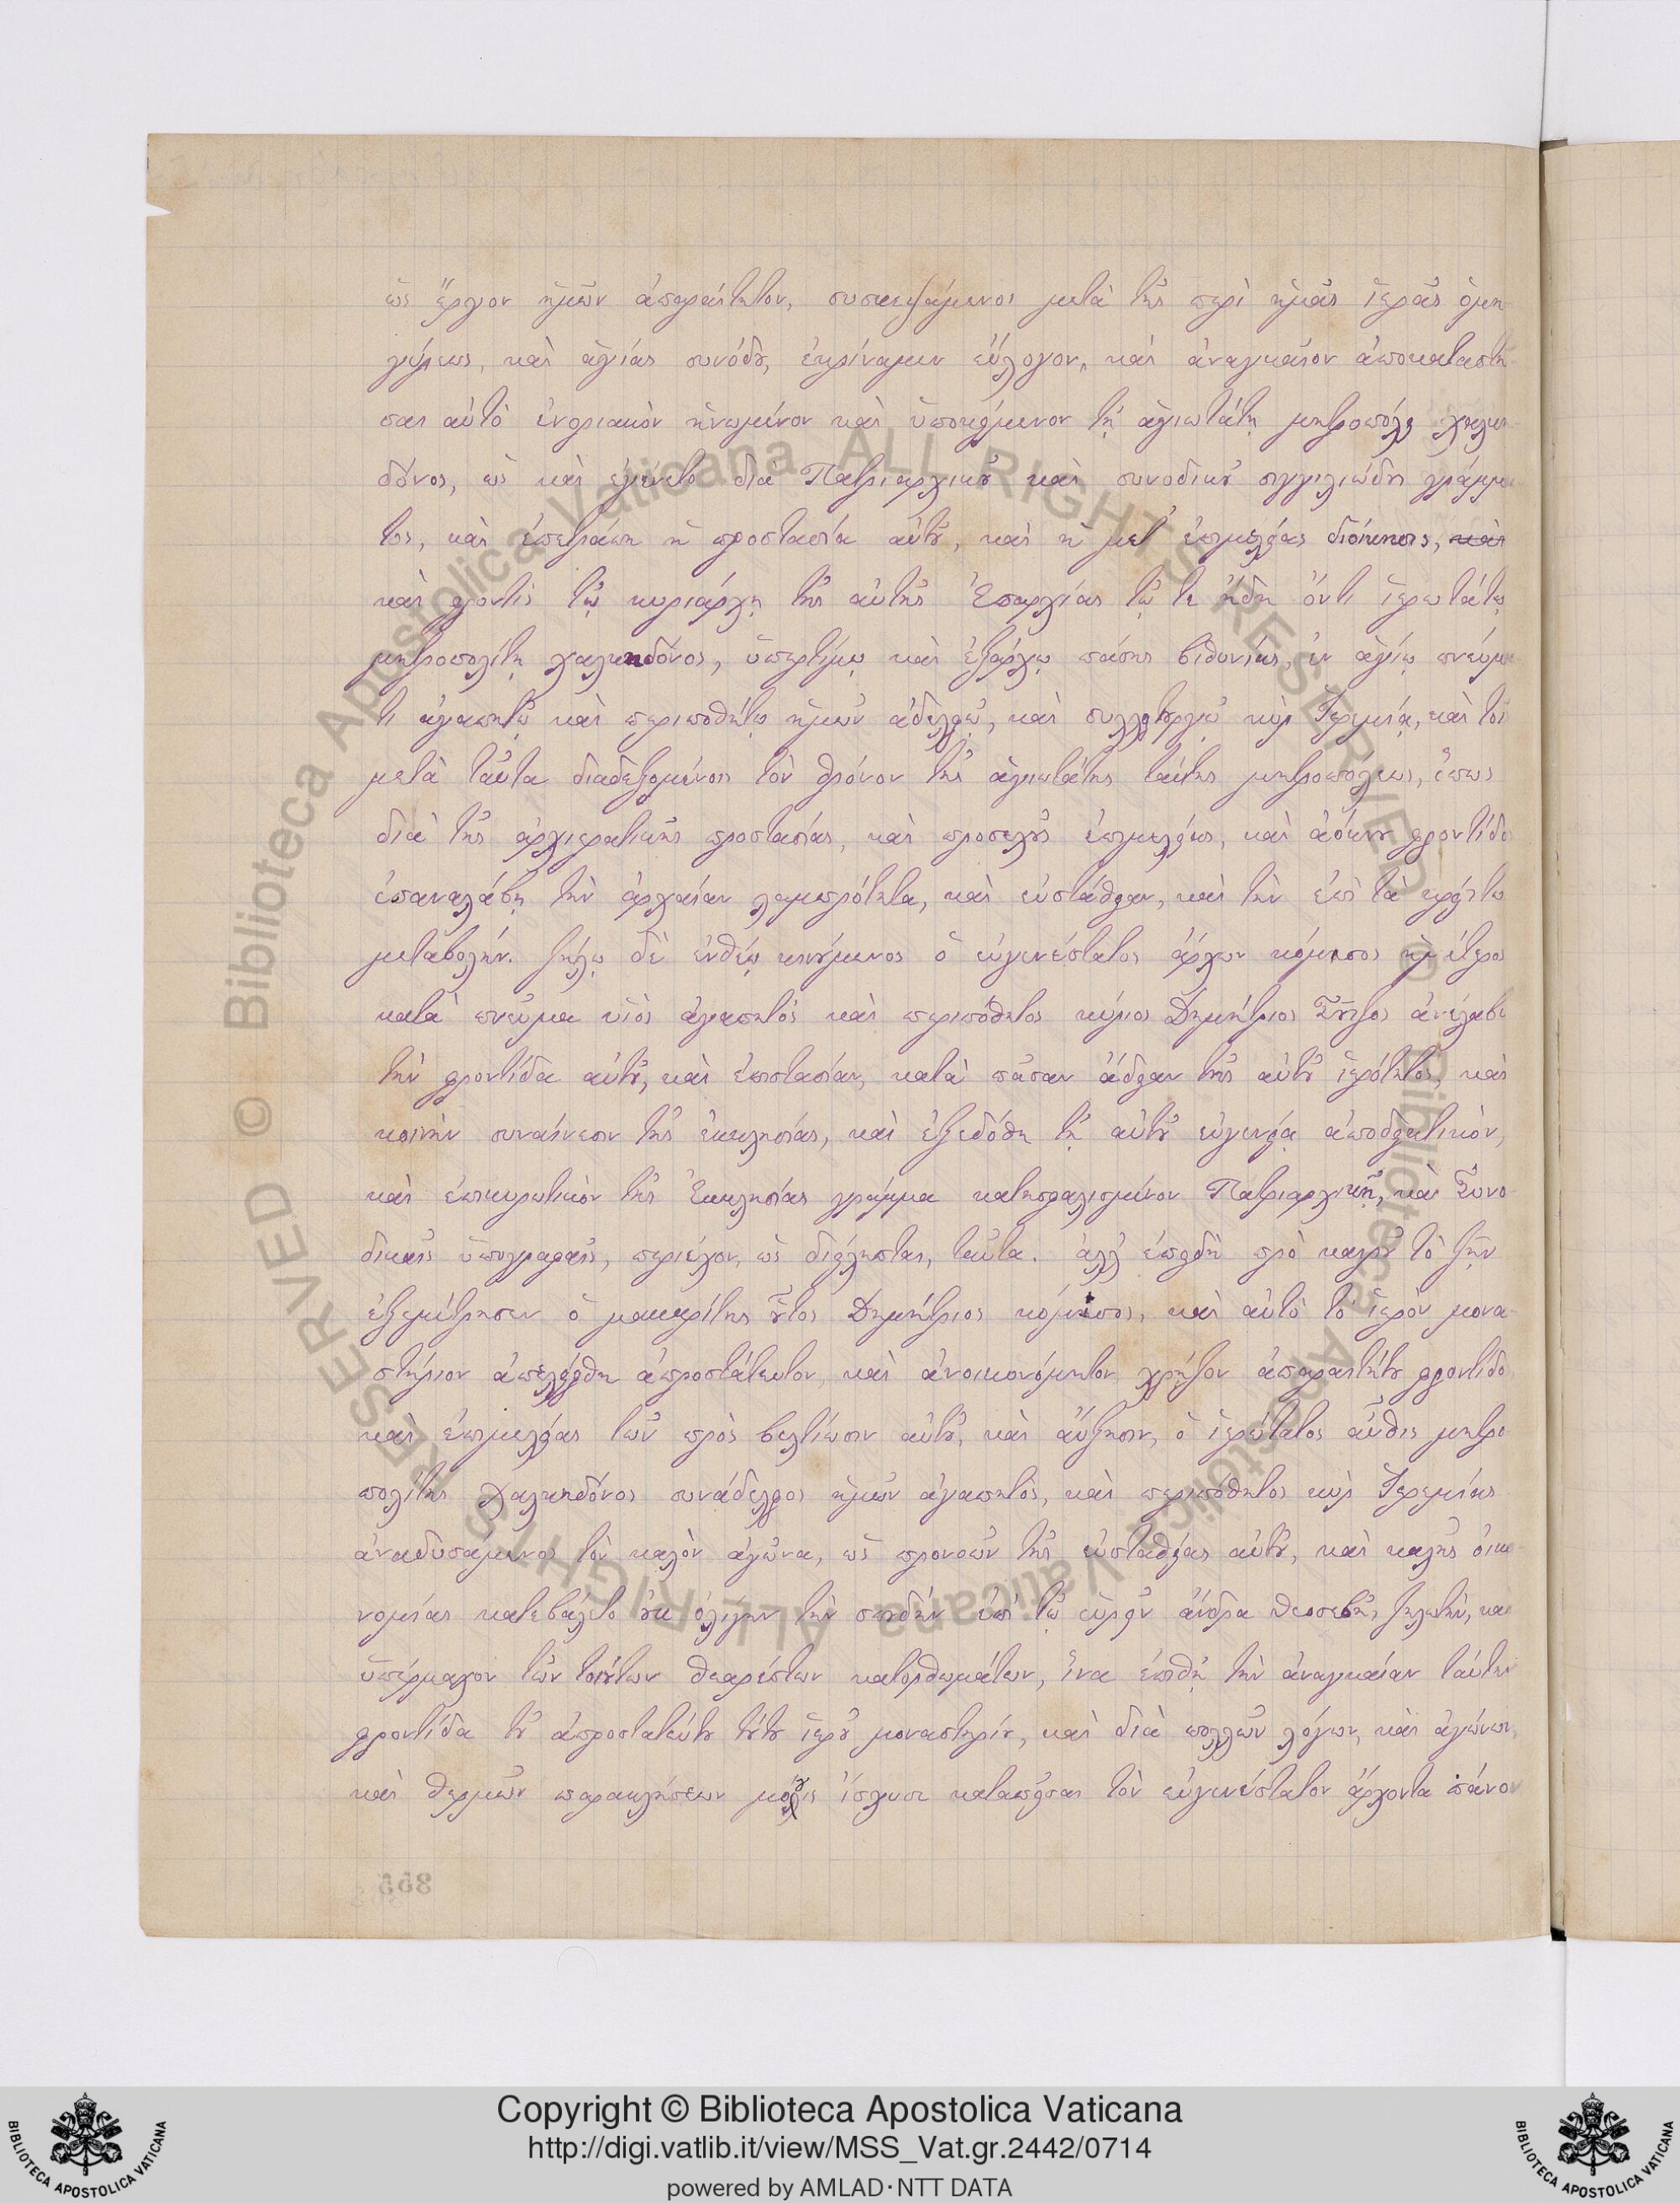 ὡς ἔργον ἡμῶν ἀπαραίτητον, συσκεψάμενοι μετὰ τῆς περὶ ἡμᾶς ἱερᾶς ὁμη
γύρεως, καὶ ἁγίας συνόδȣ, ἐκρίναμεν εὔλογον, καὶ ἀναγκαῖον ἀποκαταστῆ
σαι αὐτὸ ἐνοριακὸν ἡνωμένον καὶ ὑποκείμενον τῇ ἁγιωτάτῃ μητροπόλει χαλκη
δόνος, ὡς καὶ ἐγένετο διὰ Πατριαρχικȣ͂ καὶ συνοδικȣ͂ σιγγιλιώδȣς γράμμα
τος, καὶ ἐπετράπη ἡ προστασία αὐτȣ͂, καὶ ἡ μετ' ἐπιμελείας διοίκησις, καὶ
καὶ φροντὶς τῷ κυριάρχῃ τῆς αὐτῆς Ἐπαρχίας τῷ τε ἤδη ὄντι ἱερωτάτῳ
μητροπολίτῃ χαλκηδόνος, ὑπερτίμῳ καὶ ἐξάρχῳ πάσης βιθυνίας, ἐν ἁγίῳ πνεύμα
τι ἀγαπητῷ καὶ περιποθήτῳ ἡμῶν ἀδελφῷ, καὶ συλλειτȣργῷ κὺρ Ἱερεμίᾳ, καὶ τοῖ
μετὰ ταῦτα διαδεξομένοις τὸν θρόνον τῆς ἁγιωτάτης ταύτης μητροπόλεως, ὅπως
διὰ τῆς ἀρχιερατικῆς προστασίας, καὶ προσεχȣ͂ς ἐπιμελείας, καὶ ἀόκνȣ φροντίδο
ἐπαναλάβῃ τὴν ἀρχαίαν λαμπρότητα, καὶ εὐστάθειαν, καὶ τὴν ἐπὶ τὰ κρείττω
μεταβολήν. ζήλῳ δὲ ἐνθέῳ κινȣ́μενος ὁ εὐγενέστατος ἄρχων κόμισος ἡμέτερος
κατὰ πνεῦμα υἱὸς ἀγαπητὸς καὶ περιπόθητος κύριος Δημήτριος Σȣ͂τζος ἀνέλαβε
τὴν φροντίδα αὐτȣ͂, καὶ ἐπιστασίαν, κατὰ πᾶσαν ἄδειαν τῆς αὐτȣ͂ ἱερότητος, καὶ
κοινὴν συναίνεσιν τῆς ἐκκλησίας, καὶ ἐξεδόθη τῇ αὐτȣ͂ εὐγενείᾳ ἀποδεικτικὸν,
καὶ ἐπικυρωτικὸν τῆς Ἐκκλησίας γράμμα κατησφαλισμένον Πατριαρχικῇ, καὶ Συνο
δικαῖς ὑπογραφαῖς, περιέχον, ὡς διείληπται, ταῦτα. ἀλλ' ἐπειδὴ πρὸ καιρȣ͂ τὸ ζῇν
ἐξεμέτρησεν ὁ μακαρίτης ȣ͂τος Δημήτριος κόμισος, καὶ αὐτὸ τὸ ἱερὸν μονα-
στήριον ἀπελείφθη ἀπροστάτευτον, καὶ ἀνοικονόμητον χρῄζον ἀπαραιτήτȣ φροντίδο
καὶ ἐπιμελείας τῶν πρὸς βελτίωσιν αὐτȣ͂, καὶ αὔξησιν, ὁ ἱερώτατος αὖθις μητρο
πολίτης Χαλκηδόνος συνάδελφος ἡμῶν ἀγαπητὸς, καὶ περιπόθητος κὺρ Ἱερεμίας
ἀναδυσάμενος τὸν καλὸν ἀγῶνα, ὡς προνοῶν τῆς εὐσταθείας αὐτȣ͂, καὶ καλῆς οἰκο
νομίας κατεβάλετο ȣ̓κ ὀλίγην τὴν σπȣδὴν ἐπὶ τῷ εὑρεῖν ἄνδρα θεοσεβῆ, ζηλωτὴν, καὶ
ὑπέρμαχον τῶν τοιȣ́των θεαρέστων κατορθωμάτων, ἵνα ἐπιθῇ τὴν ἀναγκαίαν ταύτην
φροντίδα τȣ͂ ἀπροστατεύτȣ τȣ́τȣ ἱερȣ͂ μοναστηρίȣ, καὶ διὰ πολλῶν λόγων, καὶ ἀγώνων,
καὶ θερμῶν παρακλήσεων μόγις ἴσχυσε καταπεῖσαι τὸν εὐγενέστατον ἄρχοντα πάνο
355
Copyright © Biblioteca Apostolica Vaticana
http://digi.vatlib.it/view/MSS_Vat.gr.2442/0714
powered by AMLAD·NTT DATA